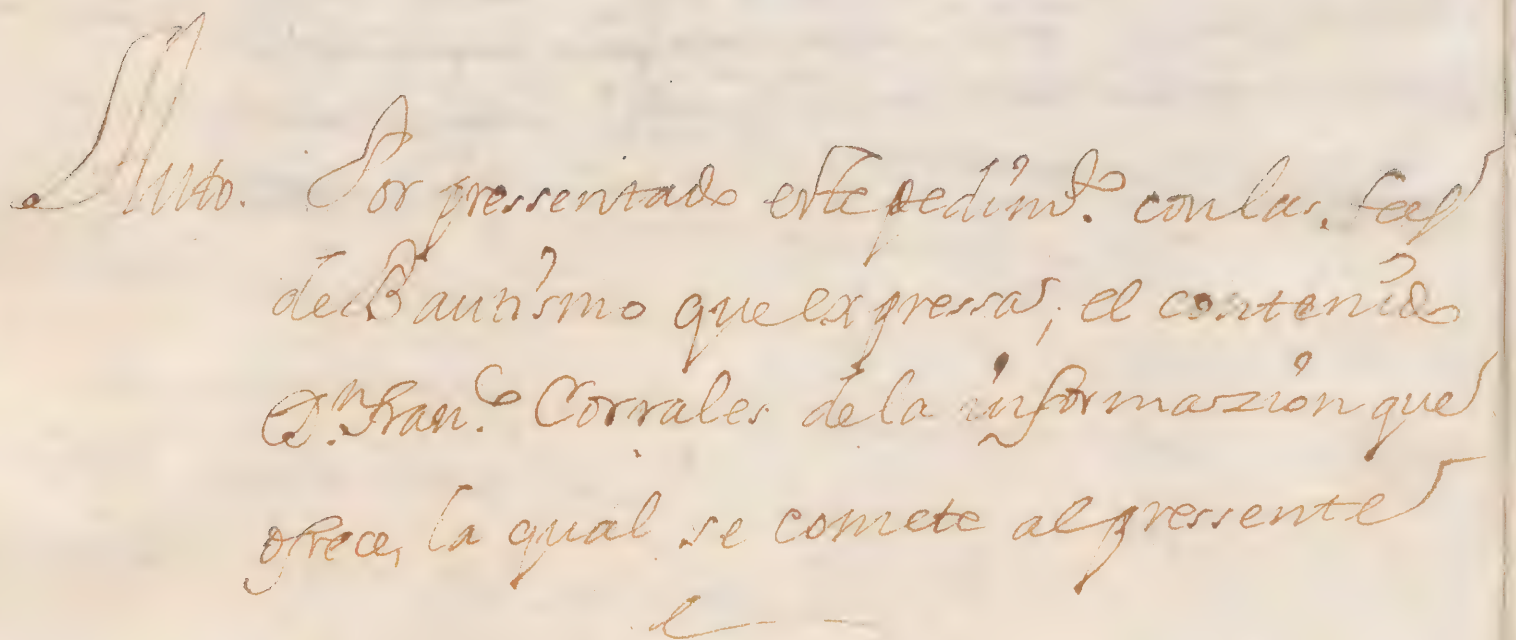 Auto. Por pressentado este pedimto. con las fees
de Bautismo que expressa, el contenido
Dn. Franco. Corrales de la informazion que
ofrece, la qual se comete al pressente